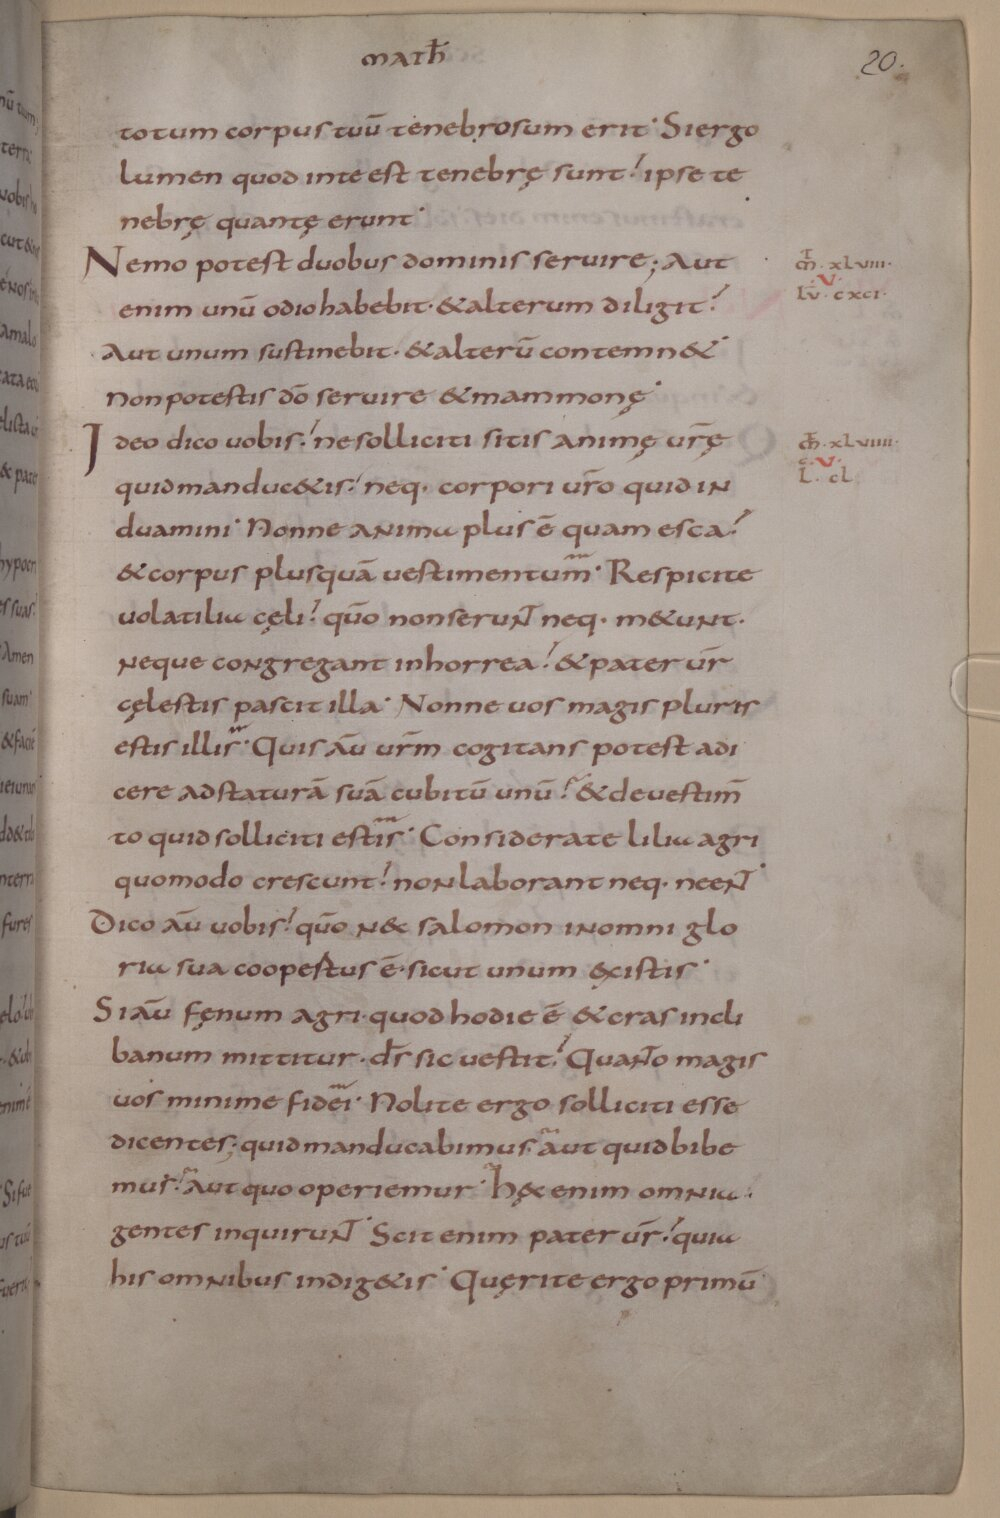 math
20.
totum corpus tuū tenebrosum erit· Si ergo
lumen quod in te est tenebrę sunt! ipse te
nebrę quantę erunt·
Nemo potest duobus dominis servire; Aut
enim unū odio habebit· & alterum diligit!
m̄· xlviii·
v·
Lu· cxci·
Aut unum sustinebit· & alterū contemn&·
Non potestis dō servire & mammonę·
Ideo dico vobis! ne solliciti sitis animę vr̄ę
m̄h· xlviiii·
v·
L· cl·
quid manduc&is! neq· corpori vr̄o quid in
duamini· Nonne anima plus ē quam esca!
& corpus plusquā vestimentum· Respicite
volatilia cęli! quō non serunt neq· m&unt·
neque congregant in horrea! & pater vr̄
cęlestis pascit illa· Nonne vos magis pluris
estis illis· Quis aū vr̄m cogitans potest adi
cere ad staturā suā cubitū unū! & de vestim̄
to quid solliciti estis· Considerate lilia agri
quomodo crescunt! non laborant neq· neent·
Dico aū vobis! quō n&c salomon in omni glo
ria sua coopestus ē· sicut unum ęx istis·
Si aū fęnum agri· quod hodie ē & cras in cli
banum mittitur· ds̄ sic vestit! Quanto magis
vos minime fidei· Nolite ergo solliciti esse
dicentes; quid manducabimus· aut quid bibe
mus· Aut quo operiemur· hęc enim omnia·
gentes inquirunt· Scit enim pater vr̄! quia
his omnibus indig&is· Quęrite ergo primū